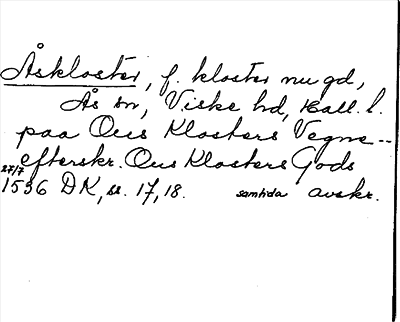 Åskloster, f. kloster nu gd,
Ås sn, Viske hd, Hall. l.
paa Ous Klosters Vegne --
efterskr. Ous Klosters Gods
27/7
1536 DK, s. 17, 18. samtida avskr.